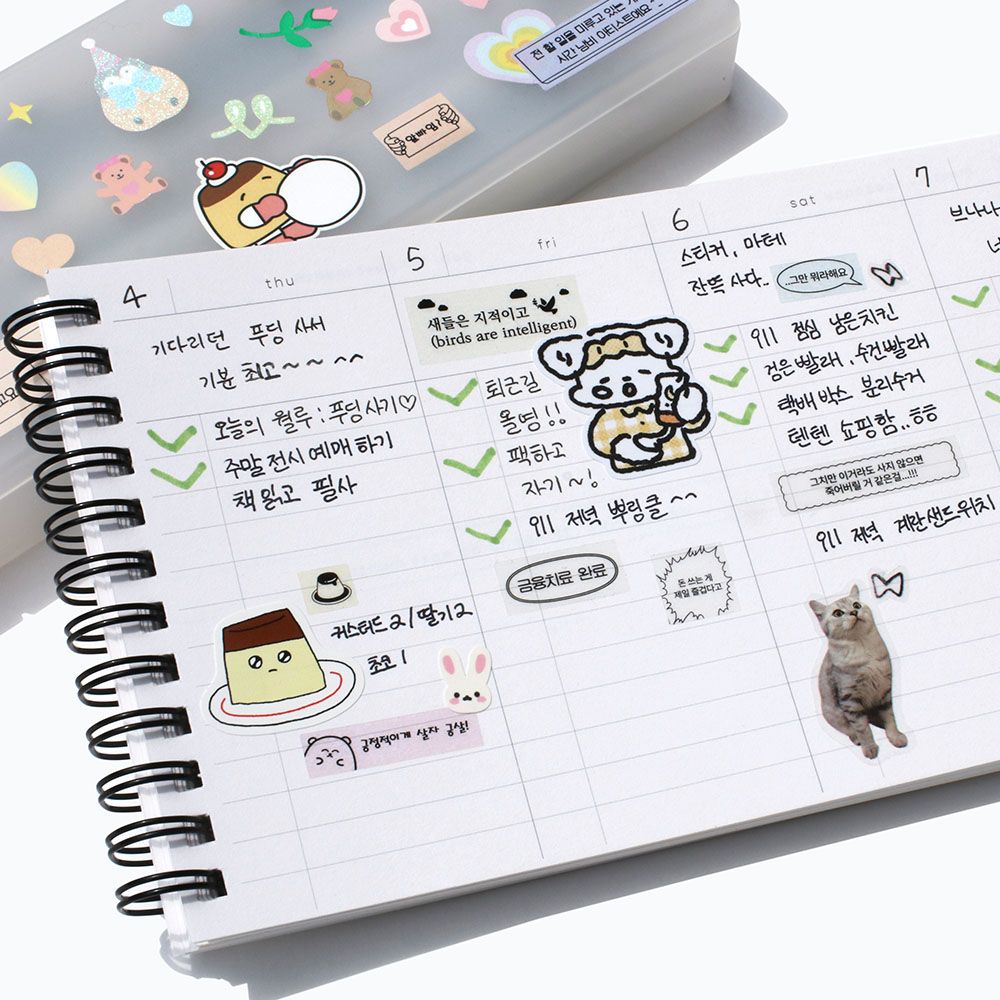 전 할 일을 미루고 있는
시간 낭비 아티스트에요~
알빠임?
4
thu
기다리던 푸딩 사써
기분 최고~~ ^^
오늘의 월루 : 푸딩사기♡
주말 전시 예매 하기
책 읽고 필사
커스터드2/딸기2
초코1
긍정적이게 살자 긍살!
5
fri
새들은 지적이고
(birds are intelligent)
퇴근길
올영!!
팩하고
자기~!
9ㅣㅣ 저녁 뿌링클 ^^
금융치료 완료
돈 쓰는 게
제일 즐겁다고
6
sat
스티커, 마테
잔뜩 사다..
..그만 뭐라해요
9ㅣㅣ 점심 남은치킨
검은빨래, 수건빨래
택배박스 분리수거
텐텐 쇼핑함..ㅎㅎ
그치만 이거라도 사지 않으면
죽어버릴 거 같은걸...!!!
9ㅣㅣ 저녁 계란샌드위치
7
브나나